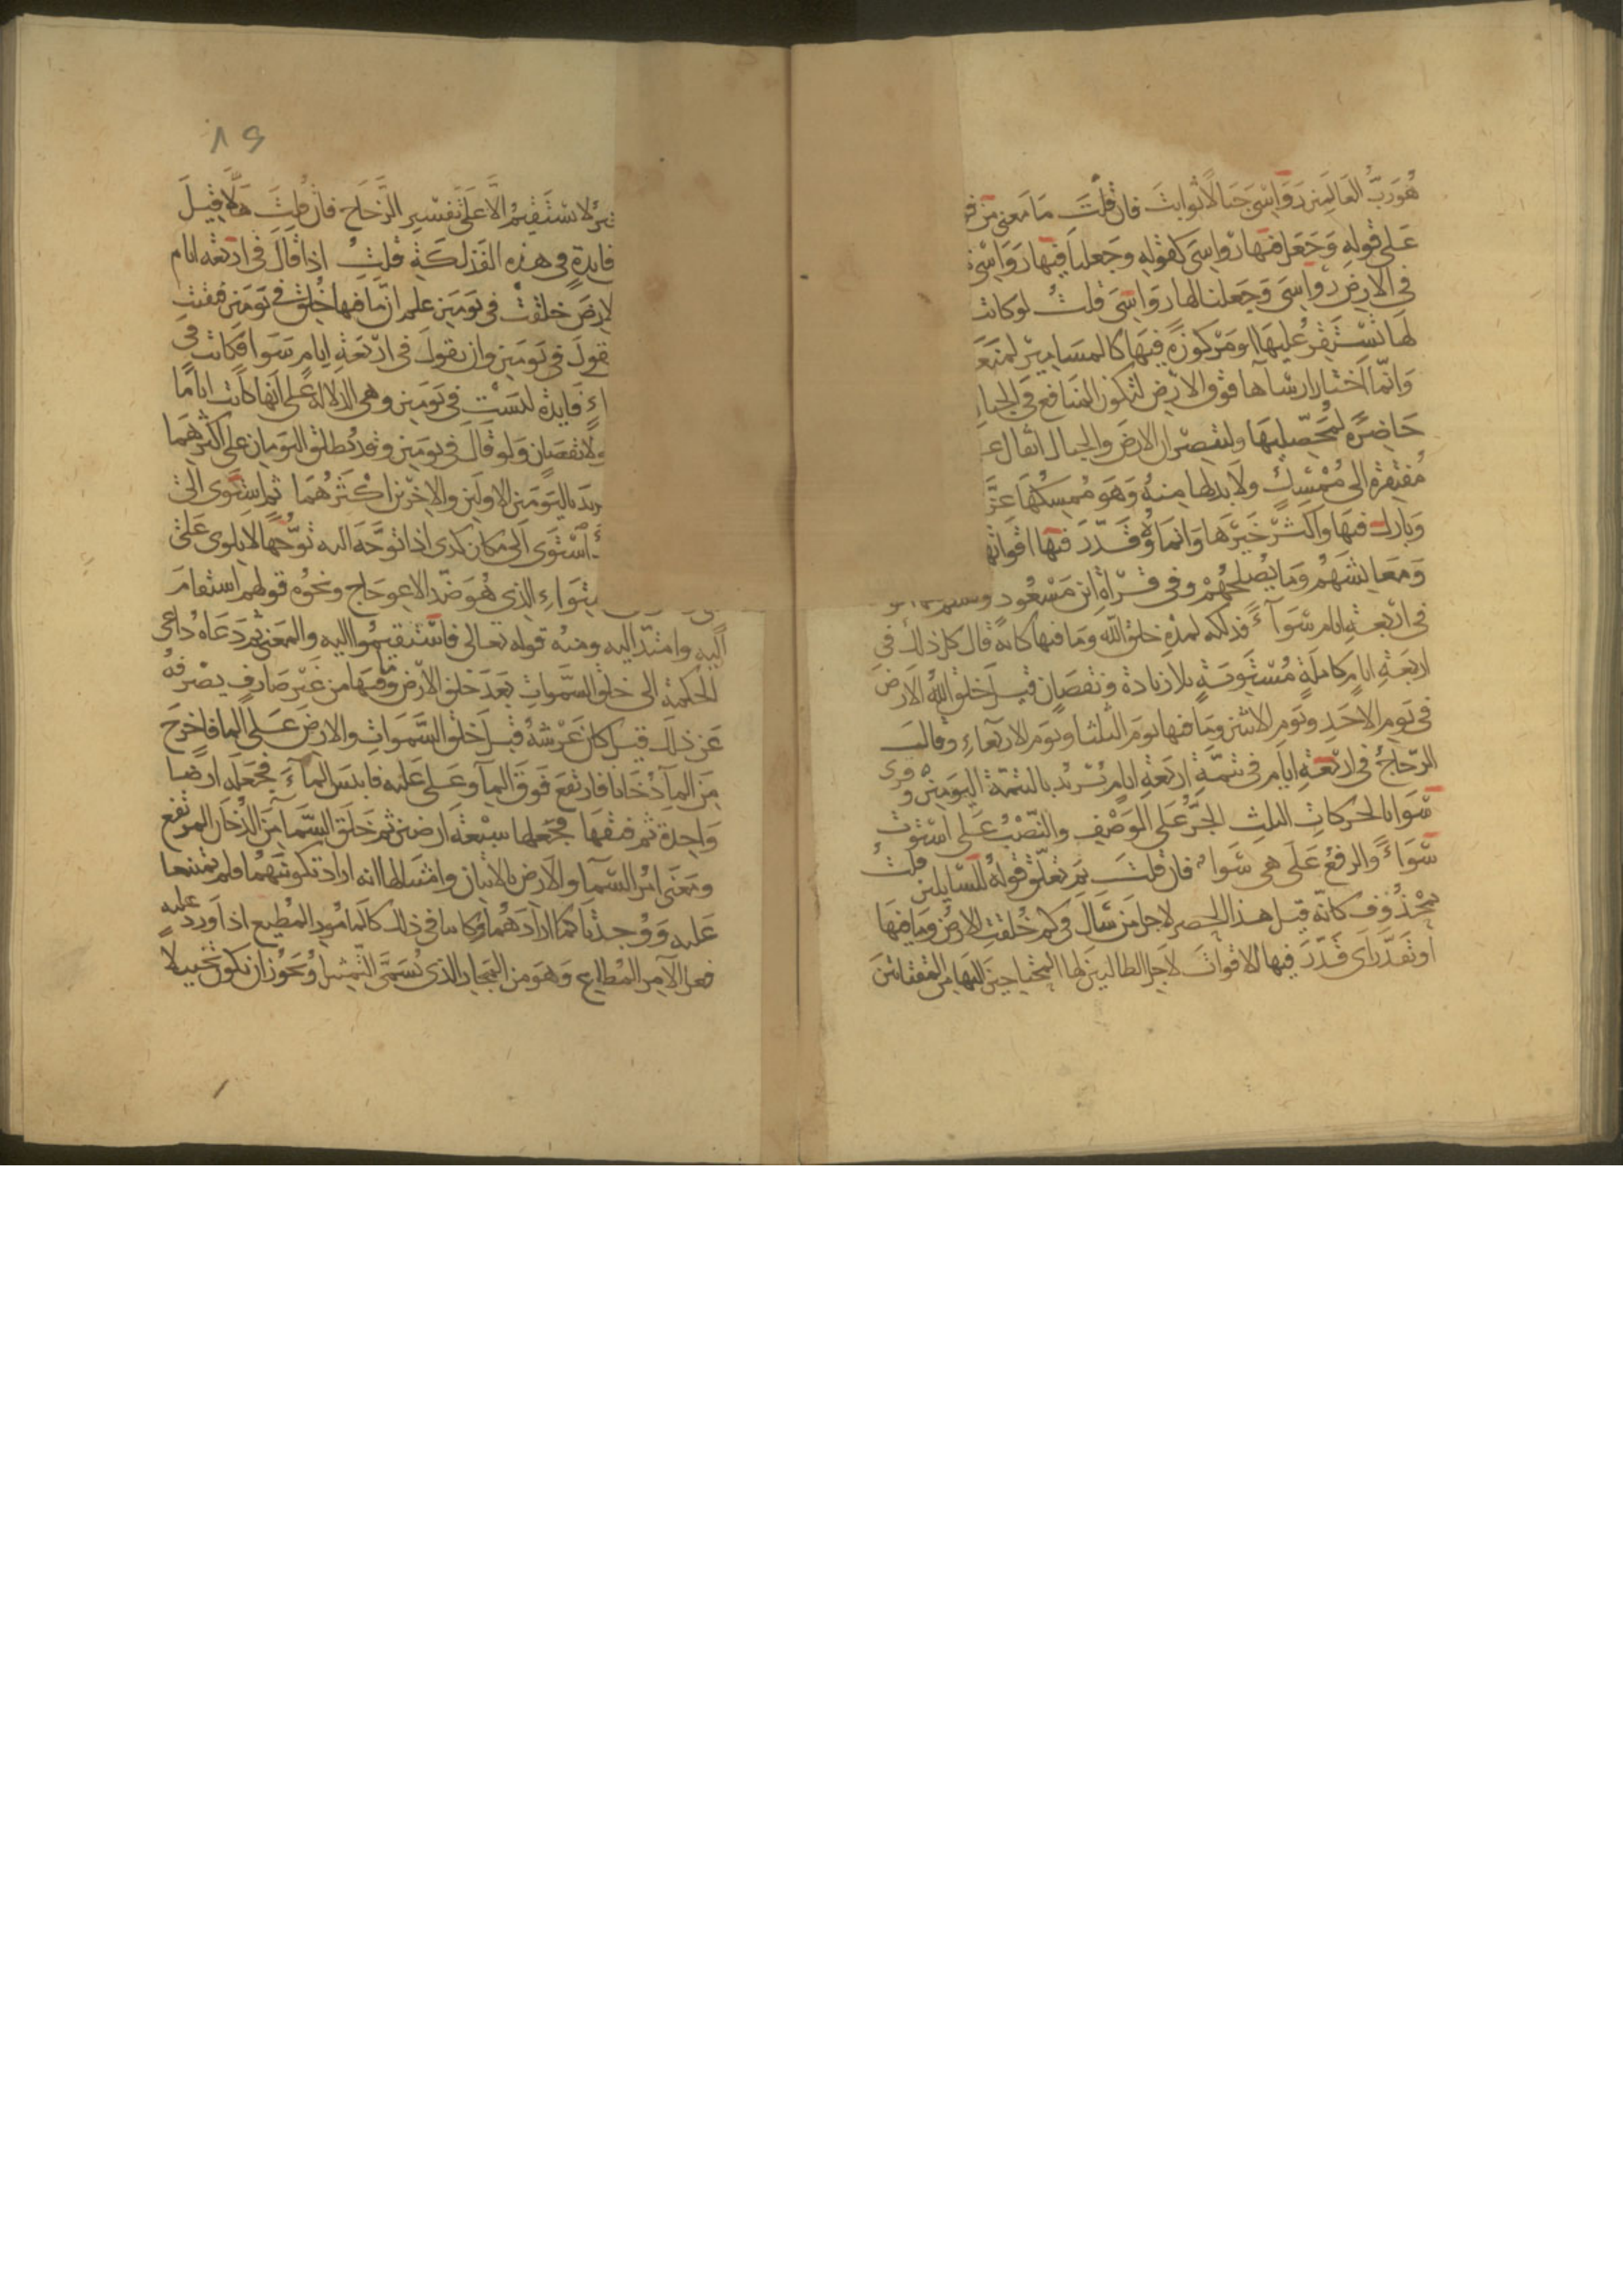 هُوَ رَبُّ العَالَمِينَ رَوَاسِيَ جبَالًا ثوابتَ فان قلتَ مَا معنى مِن فو
عَلى قولِهِ وَجَعَلَ فيهَا رَوَاسِيَ كقولِهِ وَجعلنَا فيهَا رَوَاسِيَ
في الارضِ رواسِيَ وجَعلنا لها رَوَاسِيَ قلتُ لو كانت
لهَا تَسْتَقِرُّ عَليهَا او مَركوزةً فيهَا كالمسَامِيرِ لمنعَ
وَانّما اختارَ ارسَآهَا فوقَ الارضِ لتكونَ المنافع في الجبا
حَاضِرَةً لمُحَصِّليهَا وليُبصَرَ ان الارضَ والجبالَ اثقال ع
مُفتقرة الى مُمْسِكٍ ولا بد لها مِنهُ وَهوَ مُمسِكُهَا عَزَّ
وَبَارَكَ فيهَا وَاكثرَ خَيْرهَا وَانماهُ وَقَدَّرَ فيهَا اقواتها
وَمَعَايشَهُم وَمَا يُصلِحهُمْ وفى قرآةِ ابن مَسْعُودٍ وقسم
في اربَعَةِ ايام سَوآءً فذلكه لمدةِ خلق اللهِ وَما فيها كانه قال كل ذلك في
اربَعَةِ ايامٍ كاملةٍ مُسْتوِيَةٍ بلا زيادة ونقصَانٍ قيلَ خلقَ اللهُ الارضَ
في يَومِ الاحَدِ ويَومِ الاثنين وَمَا فيهَا يَومَ الثلثا ويَوم الاربعآءِ وقال
الزّجّاجُ في اربَعَةِ ايامٍ في تتمّةِ اربَعَةِ ايامٍ يُريدُ بالتتمّة اليَومينِ وقرى
سَوَا بالحركاتِ الثلثِ الجَرُّ عَلى الوَصْفِ والنَّصْبُ عَلى اسْتوَت
سَوَاءً والرفعُ عَلى هى سَوَا فان قلتَ بِمَ تعلّق قَولهُ للسَّايلينَ قلتُ
بمحْذُوفٍ كانّه قيلَ هذا الحصر لاجلِ مَن سَالَ في كم خُلقتِ الارضُ وَمَا فيهَا
او بقَدّرَ اى قَدّرَ فيها الاقواتَ لاجلِ الطالبينَ لها المحتاجينَ اليهَا مِن المقتاتينَ
لا يَسْتَقِيمُ الّا عَلى تَفسِيرِ الزجّاج فان قلتَ هَلّا قيلَ
فايدةٍ في هذه الفذلَكَةِ قلتُ اذا قالَ في اربَعَه ايام
لارضَ خلقت في يَومَين علم ان مَا فيها خُلِقَ في يَومَين فبقيت
تقولَ في يَومَينِ وان تقولَ في اربَعَةِ ايامٍ سَوا فكانت في
فايدة ليسَت في يَومَينِ وهي الدلالة عَلى انهَا كانَت ايامًا
ولا نقصَانٍ وَلو قالَ في يومَينِ وقد يُطلَق اليَومان على اكثرهمَا
يريدَ باليَومَين الاولَينِ والاخِرَينِ اكثرَهُمَا ثم استوَى الى
اسْتوَى الى مكان كذى اذا توَجَّه اليه توَجُّهًا لا يلوى عَلى
ستوَاءِ الذى هُوَ ضدّ الاعوجَاج ونحوُه قولهم استقامَ
اليهِ وامتدّ اليه ومنهُ قوله تعالى فاسْتقيمُوا اليه والمعنى ثم دَعَاهُ داعى
الحكمة الى خلق السَّمواتِ بَعدَ خلق الارضِ وَمَا فيهَا مِن غَيْر صَارفٍ يصْرفهُ
عَن ذلك قيلَ كانَ عَرشهُ قبلَ خلقِ السَّمَواتِ والارضِ عَلى الما فاخرجَ
مِنَ المآ دُخانا فارتفعَ فوقَ المآ وعَلى عَليه فايبسَ المآءَ فجعَلَه ارضا
وَاحِدةً ثم فتقهَا فجعلها سبعَة ارضين ثم خلقَ السّمآ مِنَ الدُّخَان المرتفع
ومَعنَى امر السّمآ والارضِ بالاتيانِ وامتثالها انه ارادَ تكوينَهُما فلم يمتنعا
عَليه وَوُجِدتا كما ارادَهُمَا وكانتا في ذلكَ كالمامُورِ المُطيع اذا وَردَ عليه
فعل الآمر المُطاع وَهوَ مِن المجَازِ الذى يُسَمّى التمثيلَ ويجوز ان يكونَ تخييلا